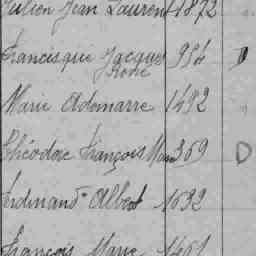 Julien Jean Laurent 1872
Francisque Jacques 954 D
René
Marie Adomarre 1492
Théodore François Marie 369 D
Ferdinand Albert 1632
François Marie 1461